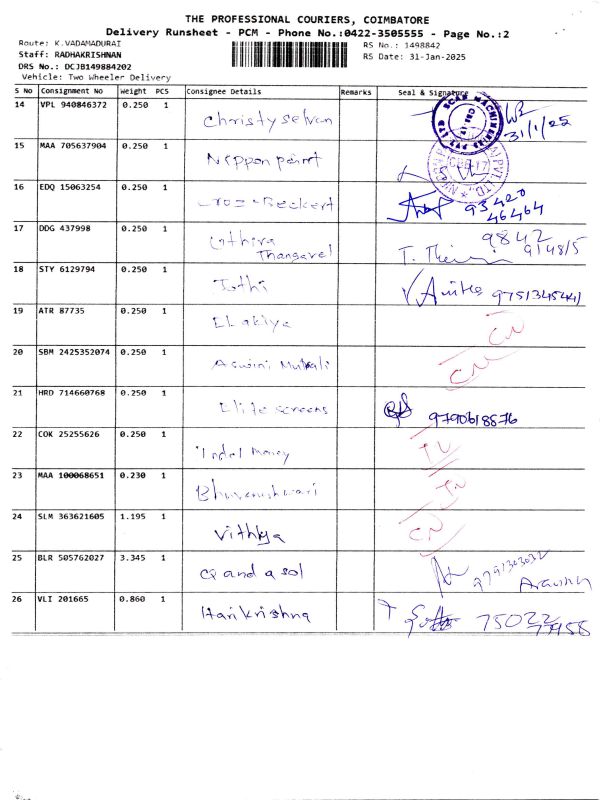 THE PROFESSIONAL COURIERS, COIMBATORE
Delivery Runsheet - PCM - Phone No.:0422-3505555 - Page No.:2
Route: K.VADAMADURAI
RS No.: 1498842
Staff: RADHAKRISHNAN
RS Date: 31-Jan-2025
DRS No.: DCJB149884202
Vehicle: Two Wheeler Delivery
S No Consignment No Weight PCS Consignee Details Remarks Seal & Signature
14 VPL 940846372 0.250 1 Christy selvan
31/1/25
15 MAA 705637904 0.250 1 Nippon paint
16 EDQ 15063254 0.250 1 Groz-Beckert 93420
46464
17 DDG 437998 0.250 1 Thangavel 9842
91485
18 STY 6129794 0.250 1 Jothi 9751345441
19 ATR 87735 0.250 1 Elakiya CN
20 SBM 2425352074 0.250 1 Aswini Murali CN
21 HRD 714660768 0.250 1 Elite screens 9790618876
22 COK 25255626 0.250 1 Indel money
23 MAA 100068651 0.230 1 Bhuvaneshwari
24 SLM 363621605 1.195 1 Vithya CN
25 BLR 505762027 3.345 1 Q and a sol 9791303032
26 VLI 201665 0.860 1 Harikrishna 75022
77958